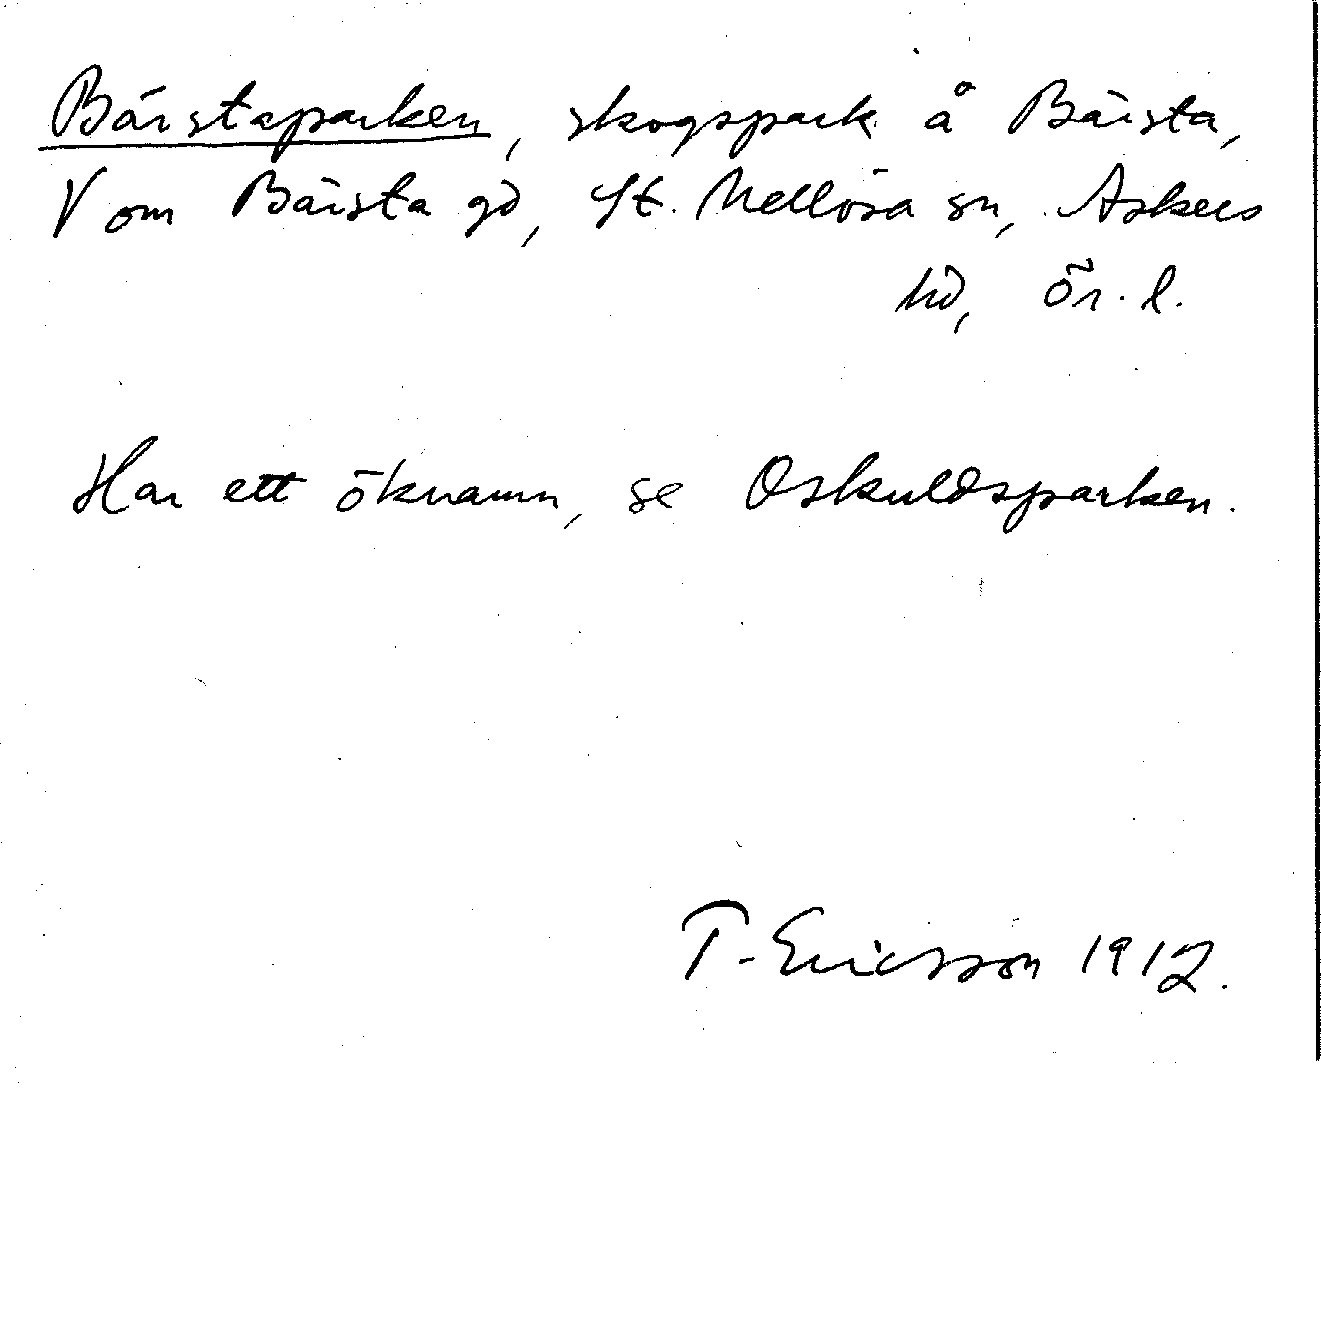 Bärstaparken, skogspark å Bärsta,
V om Bärsta gd, St. Mellösa sn, Askers
hd, Ör. l.
Har ett öknamn, se Oskuldsparken.
T. Ericsson 1912.